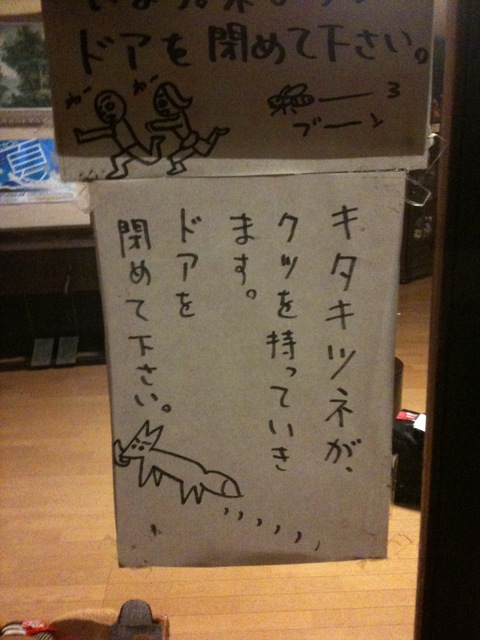 ドアを閉めて下さい。
ガ
ガ
ブーン
キタキツネが、
クツを持っていき
ます。
ドアを
閉めて下さい。